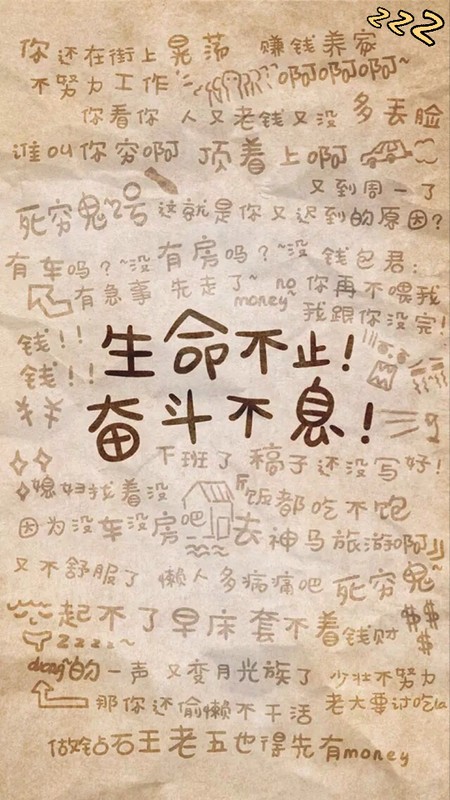 222
你还在街上晃荡 赚钱养家
不努力工作 啊啊啊啊~
你看你 人又老钱又没 多丢脸
谁叫你穷啊 顶着上啊
又到周一了
死穷鬼~2号 这就是你又迟到的原因?
有车吗?~没 有房吗?~没 钱包君:
有急事 先走了~ no money 你再不喂我
我跟你没完!
钱!!
钱!!
生命不止!
奋斗不息!
下班了 稿子还没写好!
媳妇找着没 饭都吃不饱
因为没车没房吧 去神马旅游啊
又不舒服了 懒人多病痛吧 死穷鬼~
起不了早床 套不着钱财 $$$$
zzzz~
duang的一声 又变月光族了 少壮不努力
那你还偷懒不干活 老大要讨吃la
做钻石王老五也得先有money